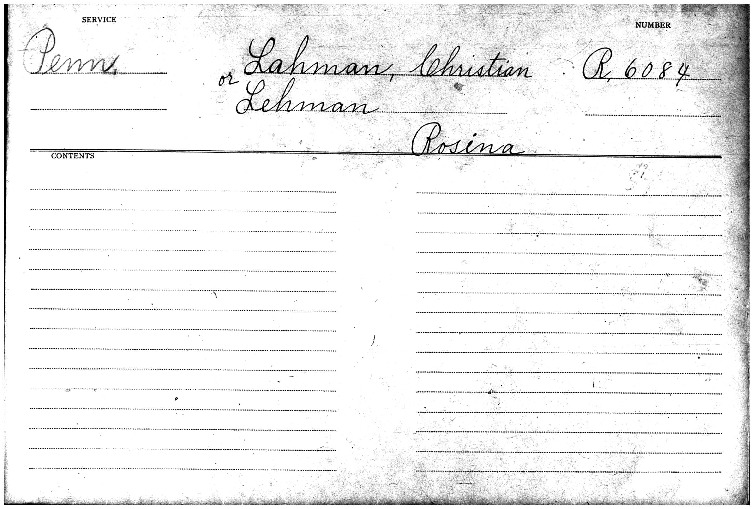 SERVICE
NUMBER
Penn. Lahman, Christian R. 6084
or Lehman
Rosina
CONTENTS